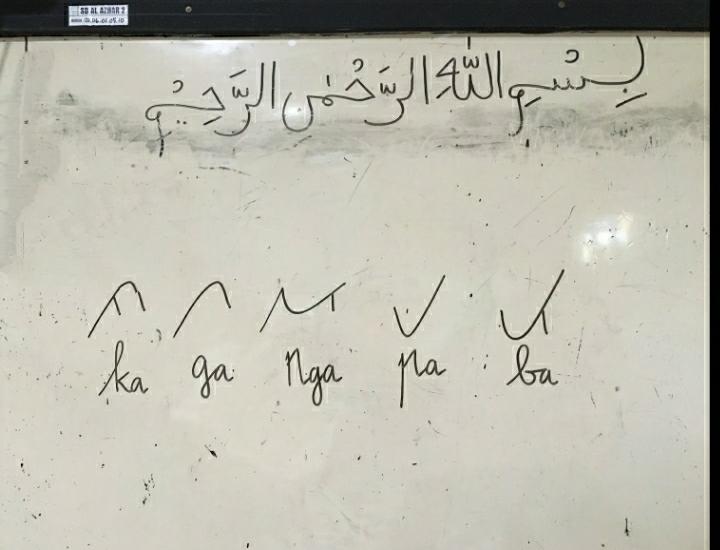 SD AL AZHAR 2
بِسْمِ اللّٰهِ الرَّحْمٰنِ الرَّحِيْمِ
ka ga nga pa ba